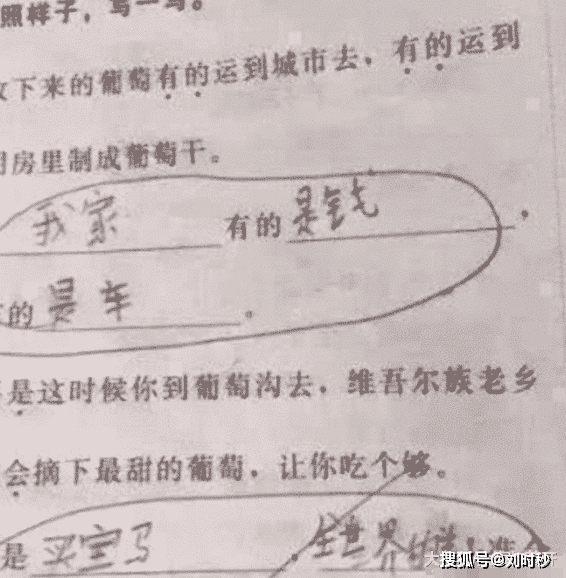 照样子，写一写。
下来的葡萄有的运到城市去，有的运到
房里制成葡萄干。
我家 有的 是钱，
的 是车。
是这时候你到葡萄沟去，维吾尔族老乡
会摘下最甜的葡萄，让你吃个够。
是 买宝马 全世界的
搜狐号@刘时砂